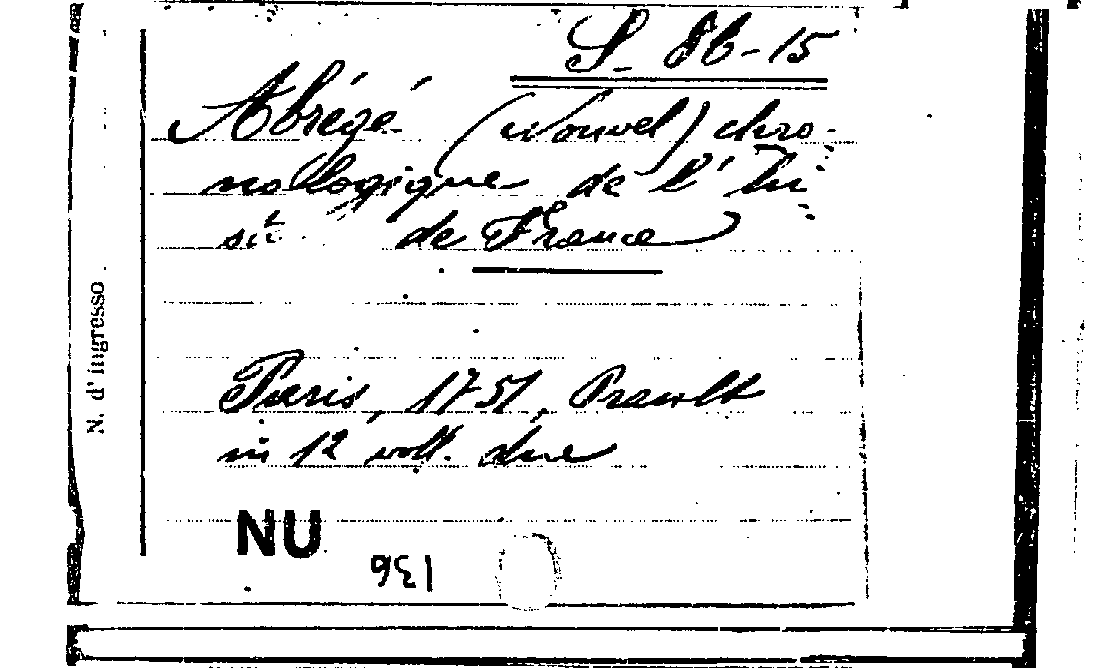 S- 86-15
Abrégé (Nouvel) chro-
nologique de l'
de France
Paris, 1751, Prault
in 12 voll. due
NU
136
N. d'ingresso